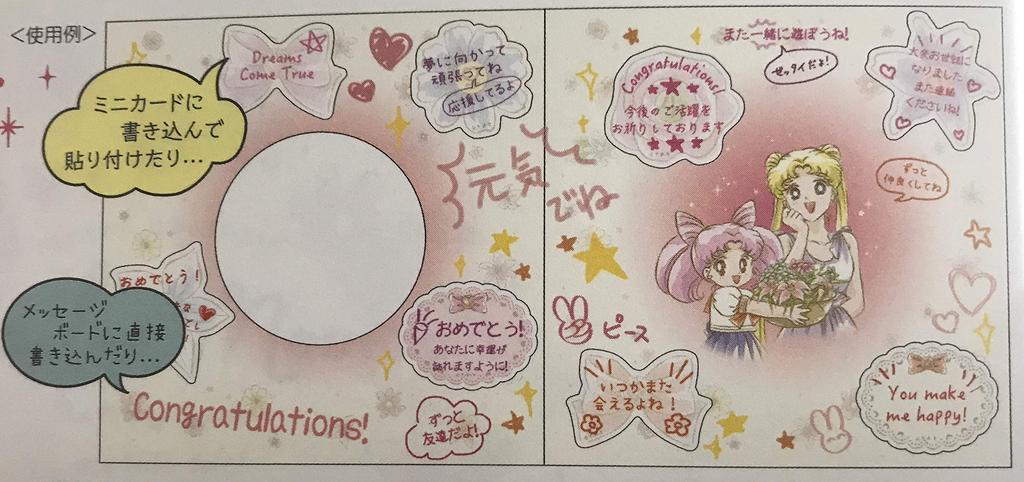 <使用例>
ミニカードに
書き込んで
貼り付けたり...
メッセージ
ボードに直接
書き込んだり...
Dreams
Come True
夢に向かって
頑張ってね
応援してるよ
元気
でね
おめでとう!
おめでとう!
あなたに幸運が
訪れますように!
Congratulations!
ずっと
友達だよ!
また一緒に遊ぼうね!
ゼッタイだよ!
Congratulations!
今後のご活躍を
お祈りしております
大変お世話に
なりました
また連絡
くださいね!
ずっと
仲良くしてね
ピース
いつかまた
会えるよね!
You make
me happy!